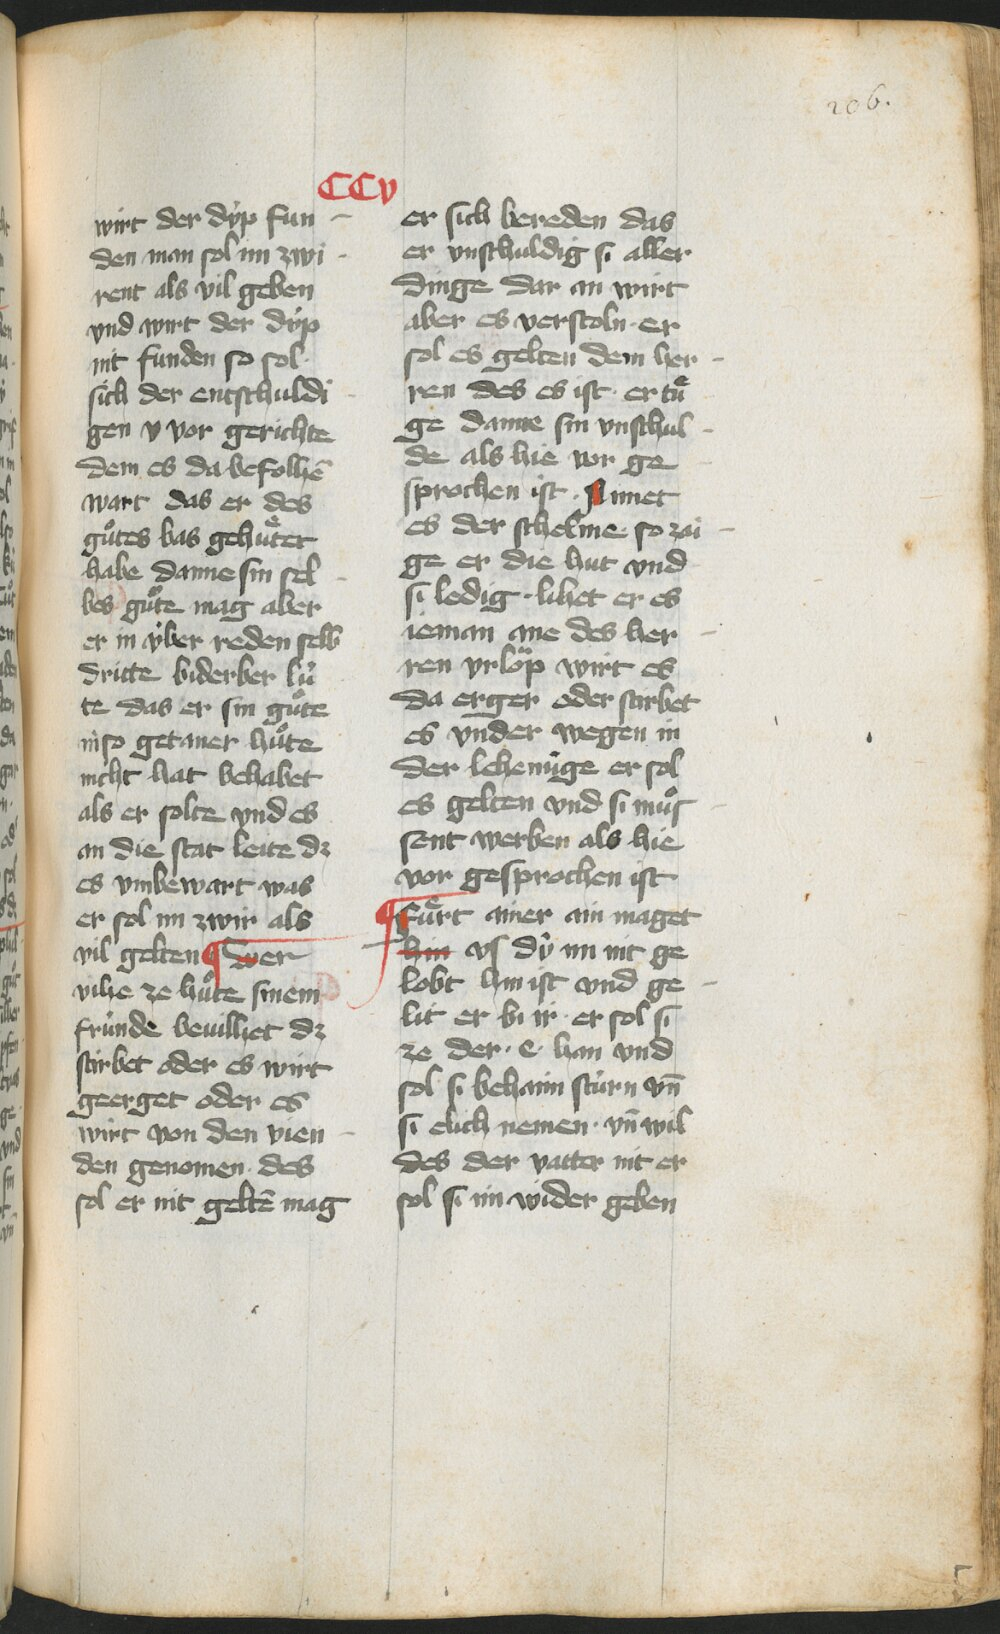 206.
CCv
wirt der dÿp fun -
den man sol im zwi -
rent als vil geben
vnd wirt der dÿp
nit funden so sol
sich der entschuldi -
gen v vor gerichte
dem es da befolhē
wart das er des
guͦtes bas gehuͤtet
habe danne sin sel -
bes guͦte mag aber
er in ÿber reden selb
dritte biderber lu̇
te das er sin guͦte
in so getaner huͦte
nicht hat behabet
als er solte vnd es
an die stat leite dz
es vmbewart was
er sol im zwir als
vil gelten ¶ Wer
vihe ze huͦte sinem
fru̇nde beuilhet dz
stirbet oder es wirt
geerget oder es
wirt von den vien -
den genomen · des
sol er nit geltē mag
er sich bereden das
er vnschuldig si aller
dinge dar an wirt
aber es verstoln · er
sol es gelten dem her -
ren des es ist · er tuͤ
ge danne sin vnschul -
de als hie vor ge
sprochen ist · Nimet
es der schelme so zai -
ge er die hut vnd
si ledig · lihet er es
ieman ane des her -
ren vrlop wirt es
da erger oder stirbet
es vnder wegen in
der lehenu̇ge er sol
es gelten vnd si muͦs -
sent werben als hie
vor gesprochen ist
¶ Fuͤrt ainer ain maget
hin vs du̇ im nit ge
lobt hin ist vnd ge -
lit er bi ir · er sol si
ze der · e · han vnd
sol si behaim stu̇rn vn̄
si elich nemen · vn̄ wil
des der vatter nit er
sol si im wider geben